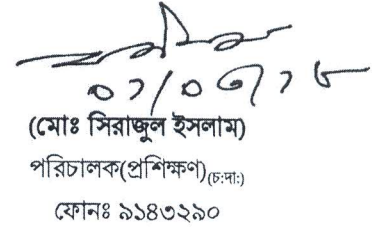 (মোঃ সিরাজুল ইসলাম)
পরিচালক(প্রশিক্ষণ)(চ:দা:)
ফোনঃ ৯১৪৩২৯০